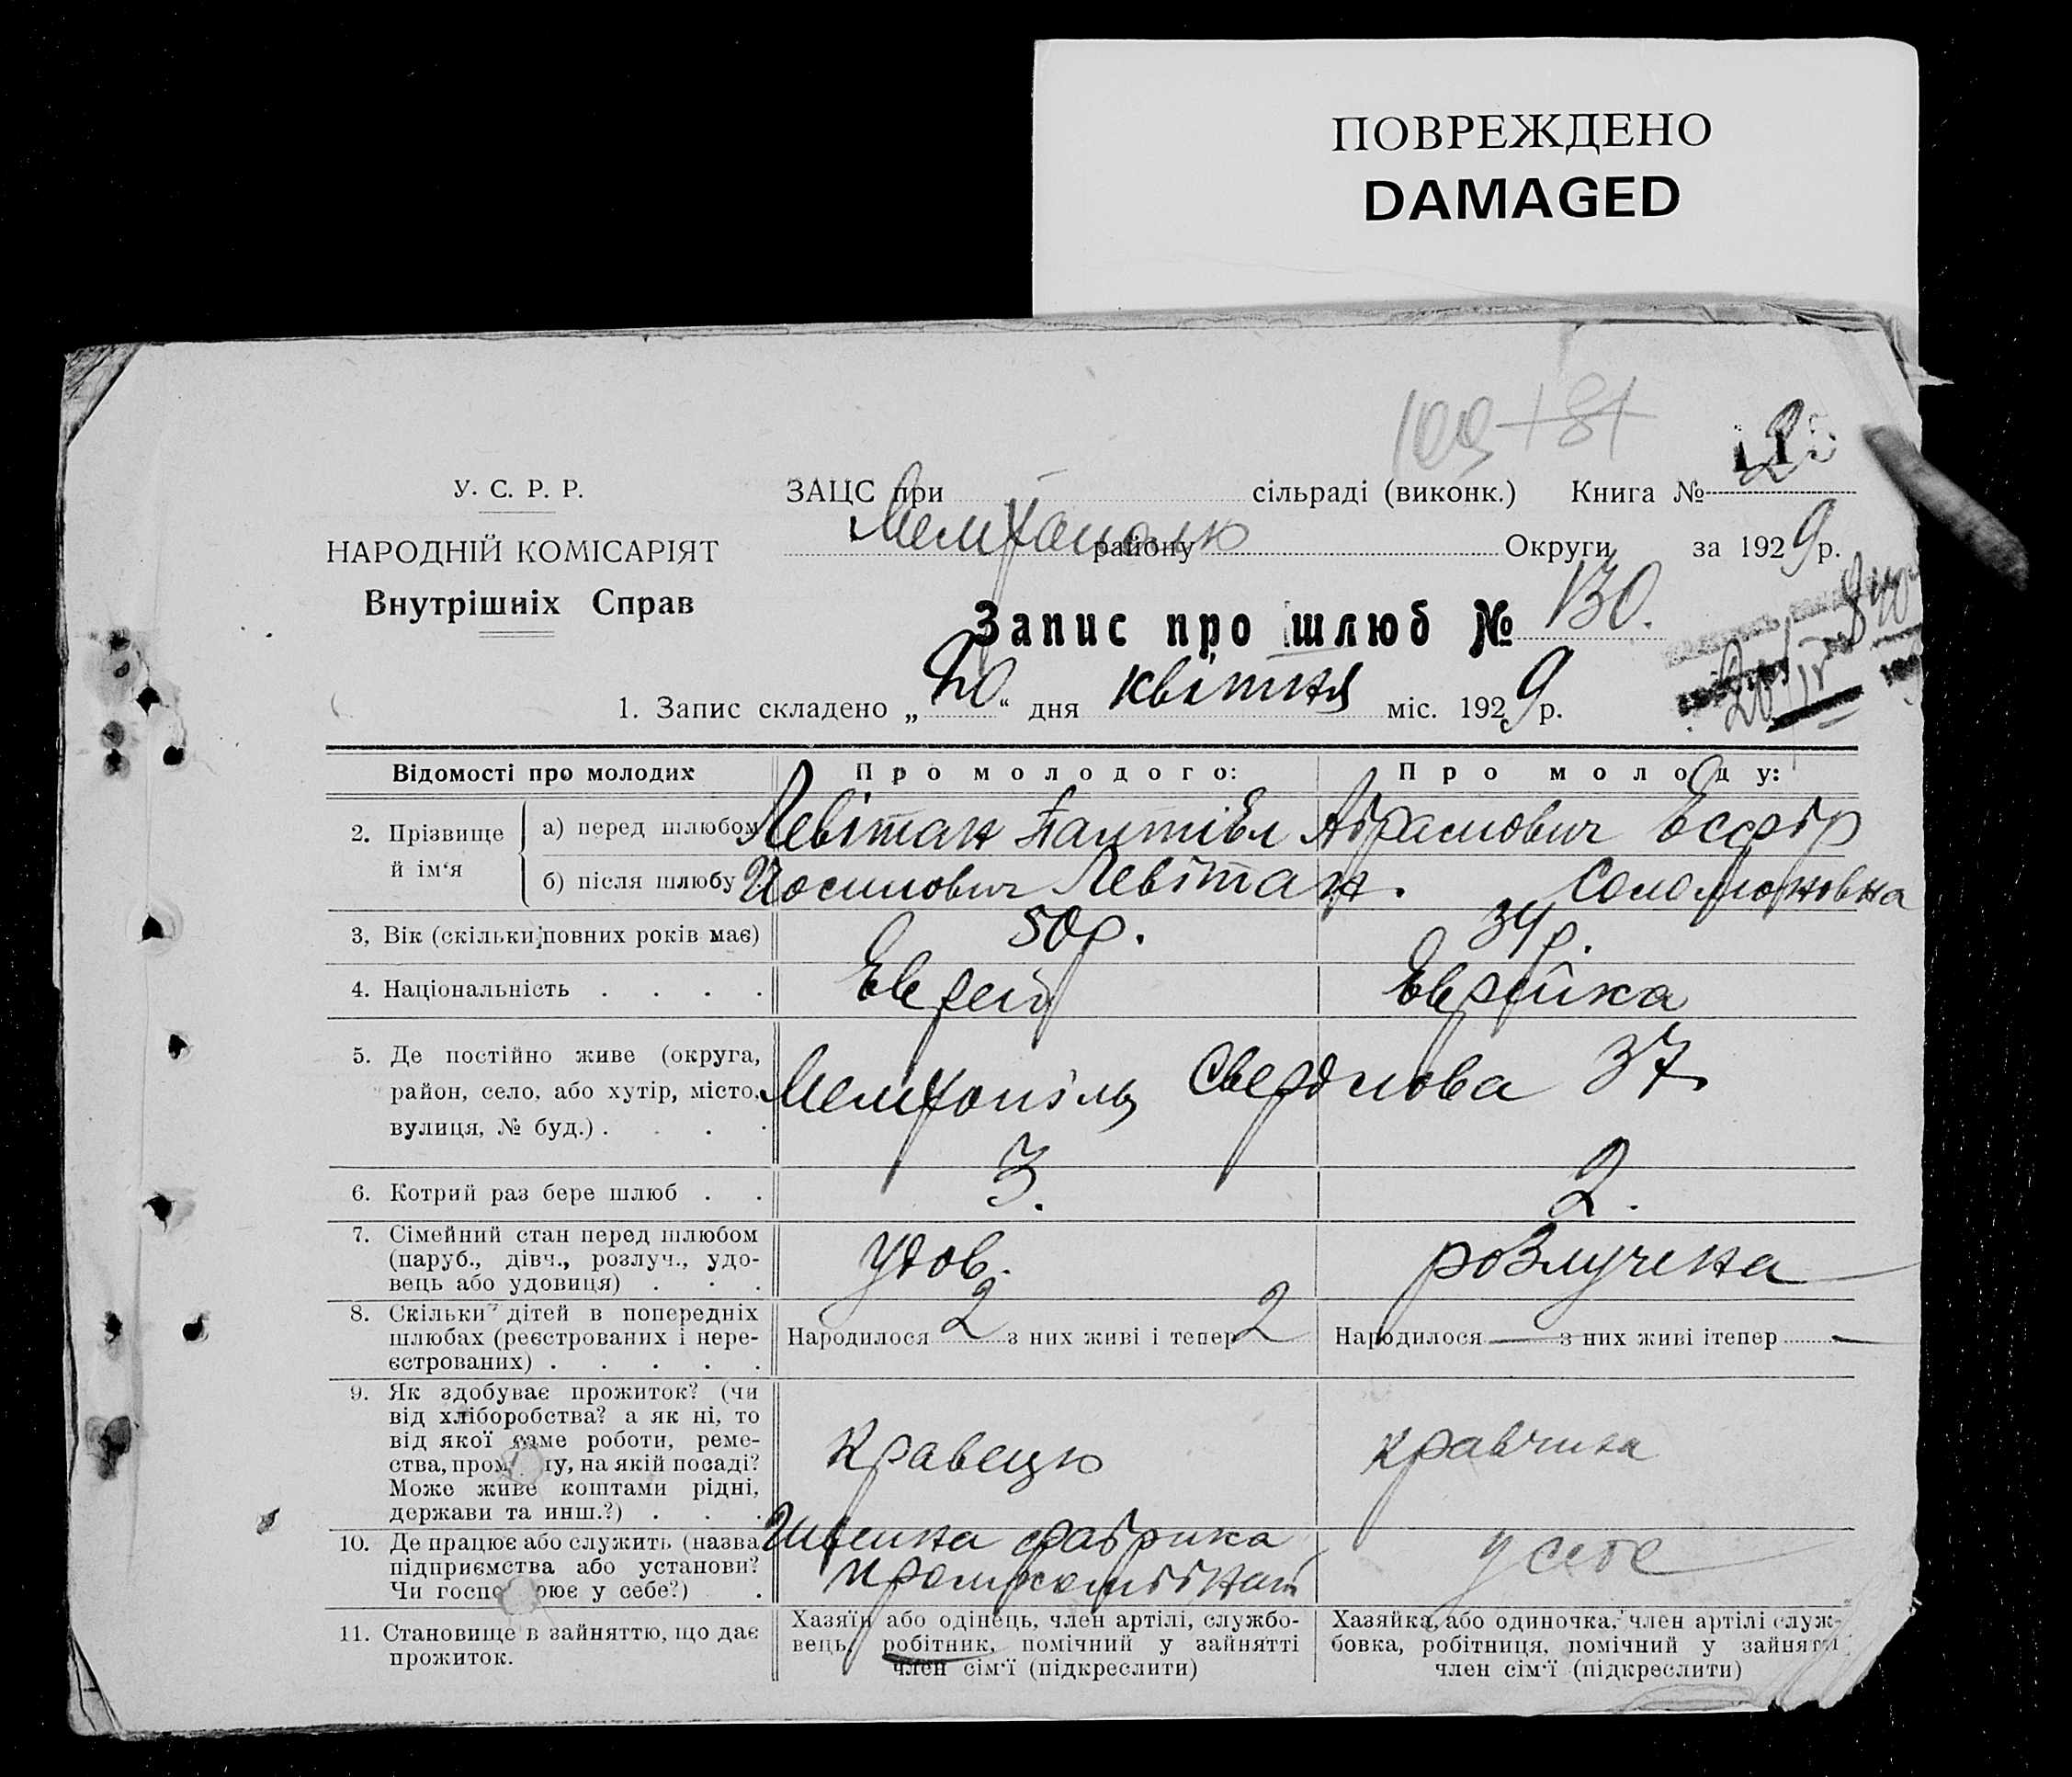 ПОВРЕЖДЕНО
DAMAGED
У. С. Р. Р.
НАРОДНІЙ КОМІСАРІЯТ
Внутрішніх Справ
ЗАЦС при сільраді (виконк.) Книга №
району Округи за 1929 р.
Запис про шлюб № 130.
1. Запис складено „20“ дня квітня міс. 1929 р.
Відомості про молодих
Про молодого:
Про молоду:
2. Прізвище й ім‘я
а) перед шлюбом
Левітан
Абрамович Есфір
б) після шлюбу
Йосипович Левітан.
Соломоновна
3. Вік (скільки повних років має)
50 р.
34 р.
4. Національність . . . .
Еврей
Еврейка
5. Де постійно живе (округа,
район, село, або хутір, місто,
вулиця, № буд.) . . . .
Мелитопіль Свердлова 37
6. Котрий раз бере шлюб . .
3.
2.
7. Сімейний стан перед шлюбом
(паруб., дівч., розлуч., удо-
вець або удовиця) . . .
Удов.
розлучена
8. Скільки дітей в попередніх
шлюбах (реєстрованих і нере-
єстрованих) . . . . .
Народилося 2 з них живі і тепер 2
Народилося — з них живі ітепер —
9. Як здобуває прожиток? (чи
від хліборобства? а як ні, то
від якої саме роботи, реме-
ства, пром у, на якій посаді?
Може живе коштами рідні,
держави та инш.?) . . .
Кравець
Кравчиха
10. Де працює або служить (назва
підприємства або установи?
Чи госпо рює у себе?) .
Швейна фабрика
Промкомбінат
у себе
11. Становище в зайняттю, що дає
прожиток.
Хазяїн або одінець, член артілі, службо-
вець, робітник, помічний у зайнятті
член сім‘ї (підкреслити)
Хазяйка, або одиночка, член артілі служ-
бовка, робітниця, помічний у зайнятті
член сім‘ї (підкреслити)